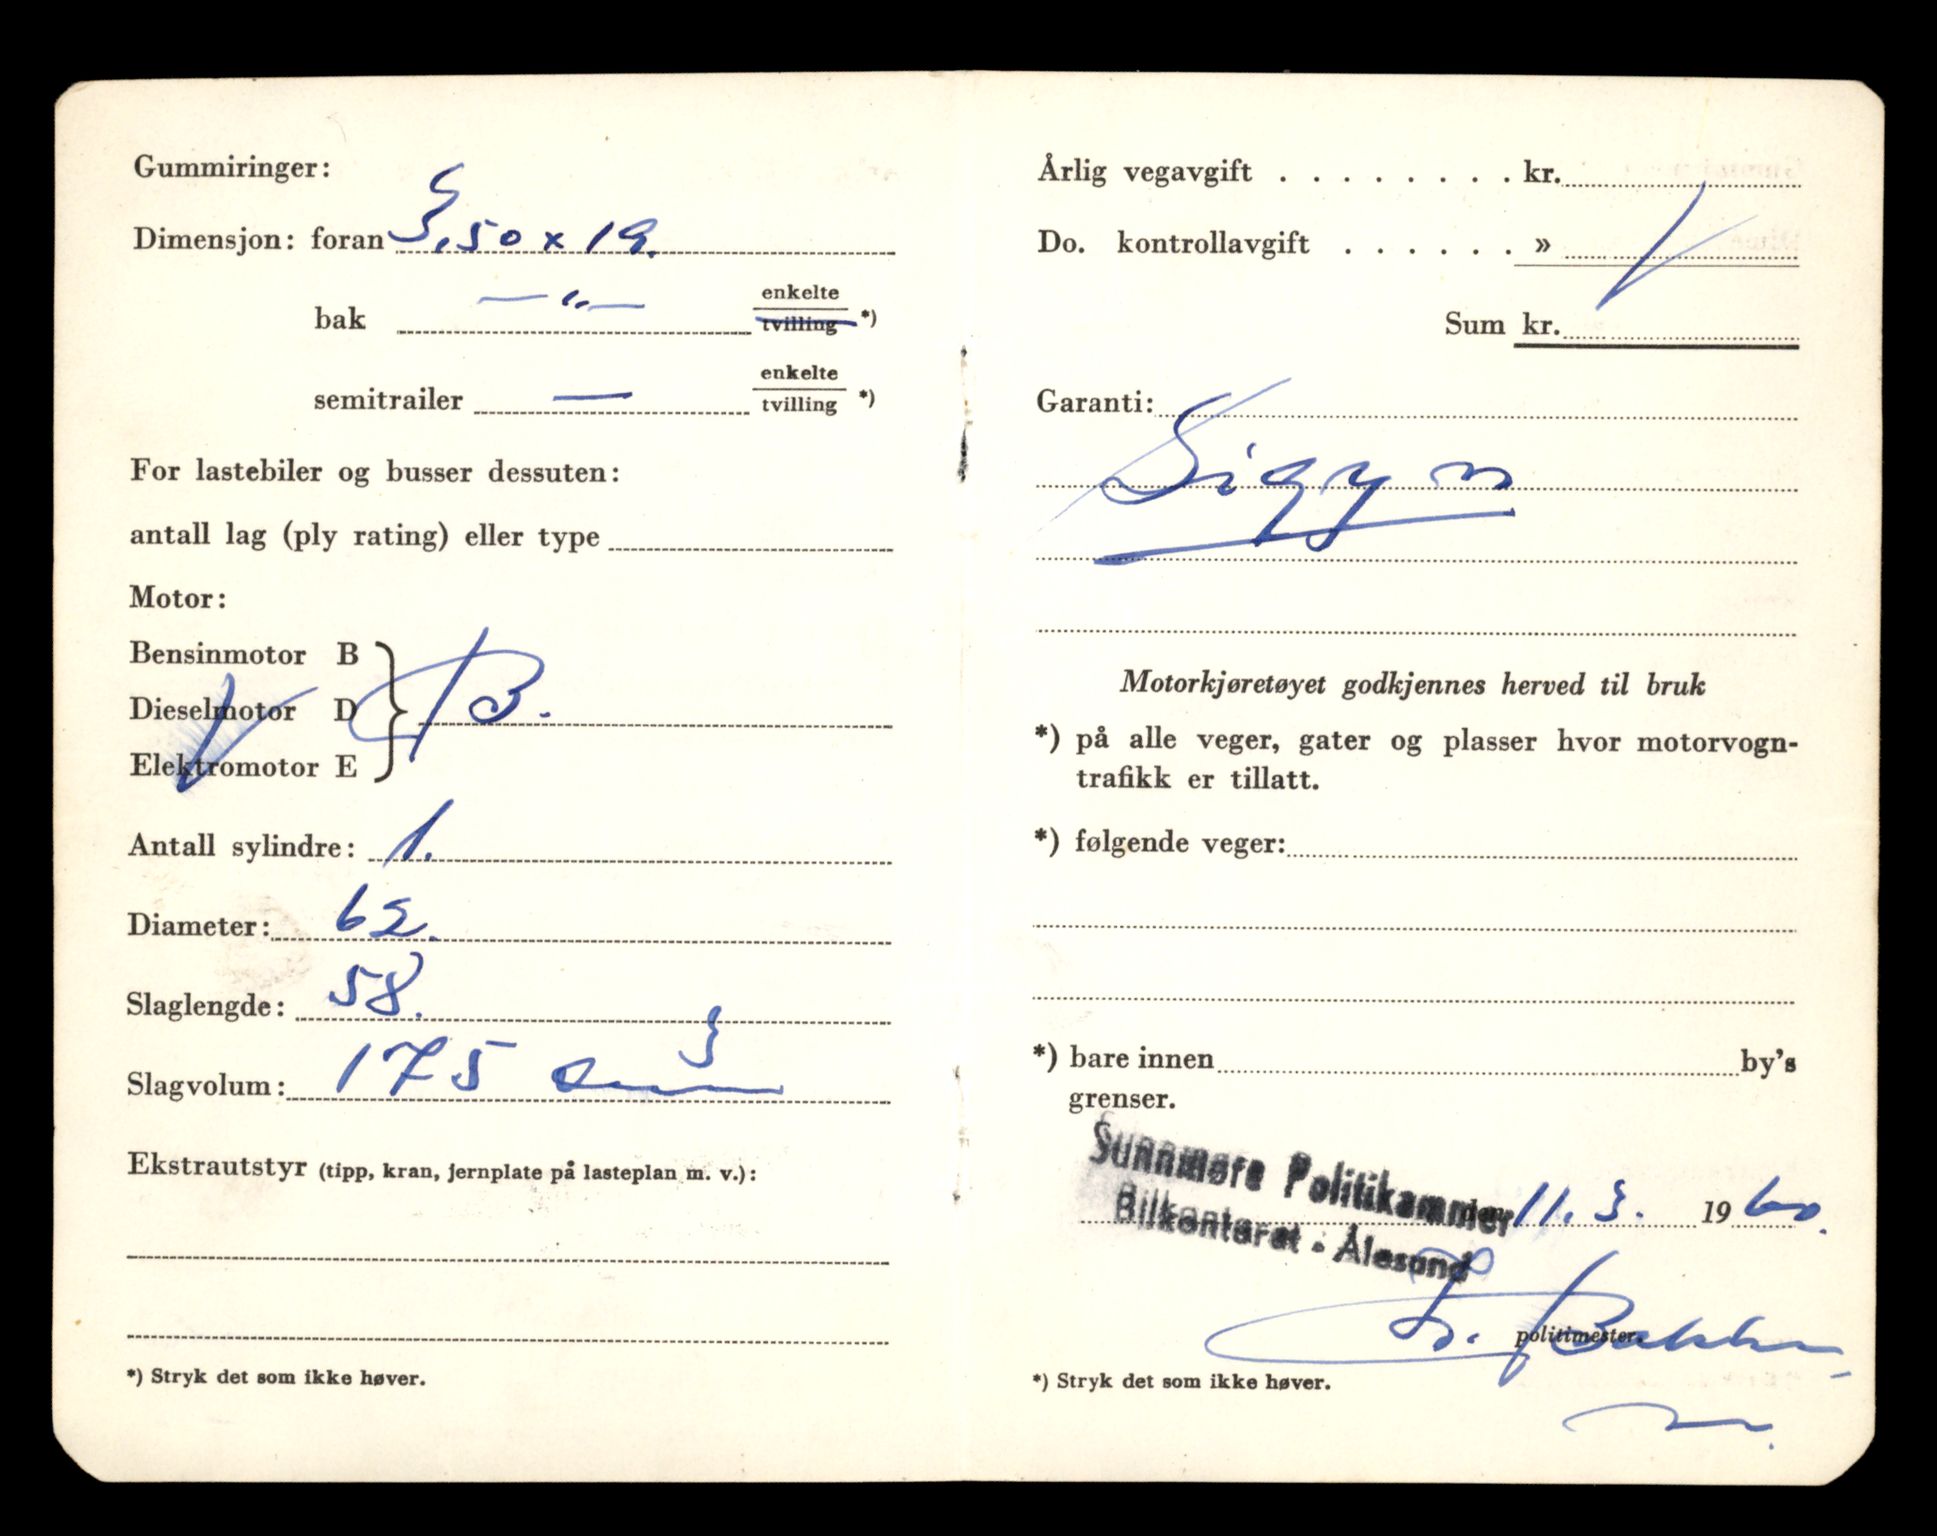 Gummiringer:
Dimensjon: foran 3,50 x 19.
bak — " — enkelte
tvilling *)
semitrailer — enkelte
tvilling *)
For lastebiler og busser dessuten:
antall lag (ply rating) eller type
Motor:
Bensinmotor B
Dieselmotor D B.
Elektromotor E
Antall sylindre: 1.
Diameter: 62.
Slaglengde: 58.
Slagvolum: 175 cm³
Ekstrautstyr (tipp, kran, jernplate på lasteplan m. v.):
*) Stryk det som ikke høver.
Årlig vegavgift . . . . . . . . kr.
Do. kontrollavgift . . . . . . »
Sum kr.
Garanti:
Sigyn
Motorkjøretøyet godkjennes herved til bruk
*) på alle veger, gater og plasser hvor motorvogn-
trafikk er tillatt.
*) følgende veger:
*) bare innen by's
grenser.
Sunnmøre Politikammer
11. 3. 1960.
Bilkontoret - Ålesund
politimester.
*) Stryk det som ikke høver.